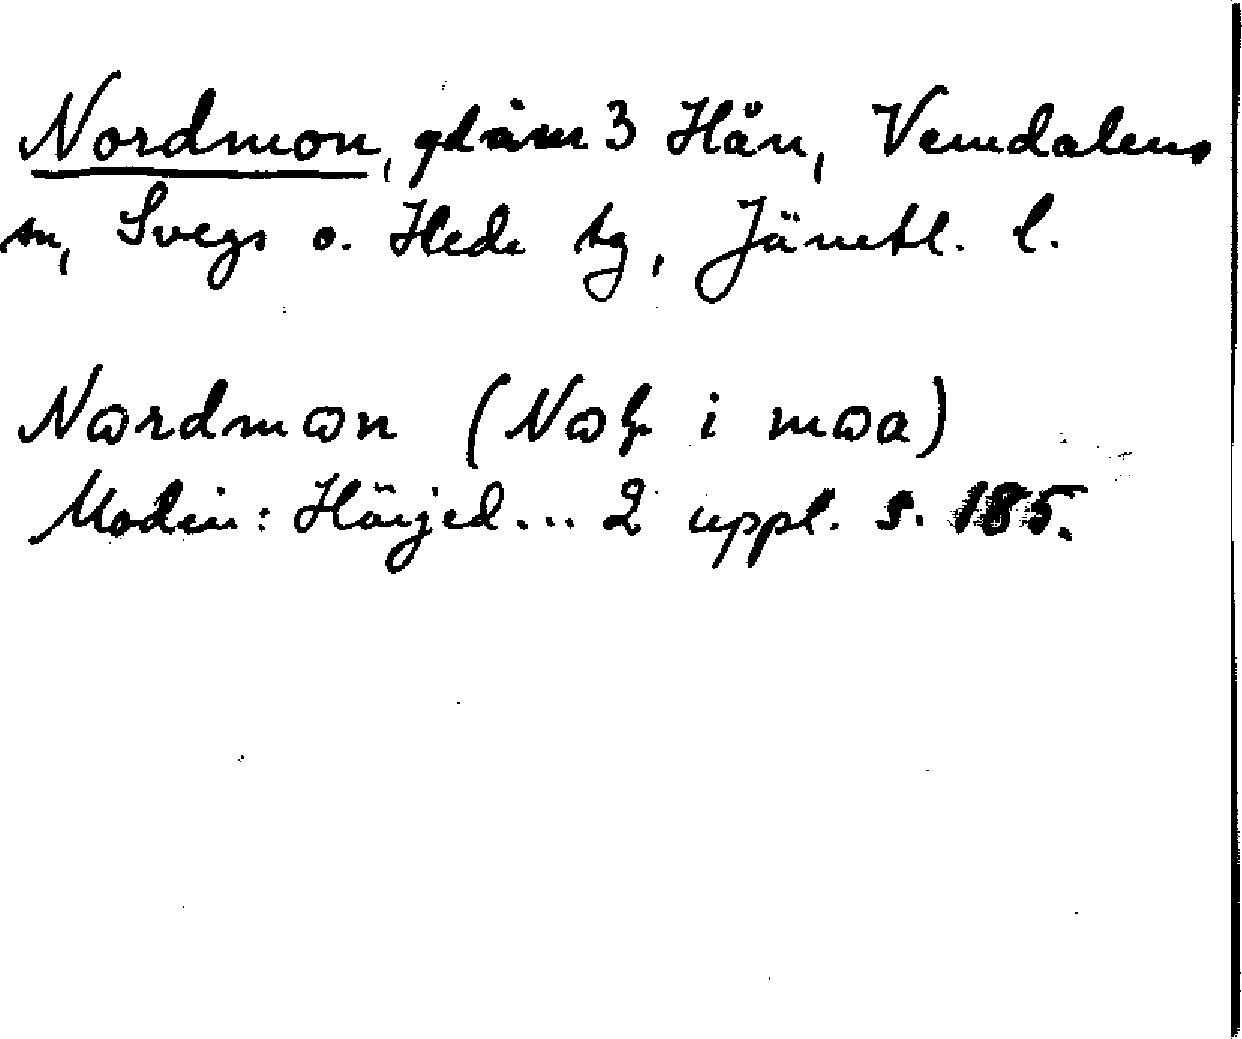 Nordmon, gd å nr 3 Hån, Vemdalens
sn, Svegs o. Hede tg, Jämtl. l.
Nωrdmωn ( i mωa)
Modin: Härjed... 2 uppl. s. 185.